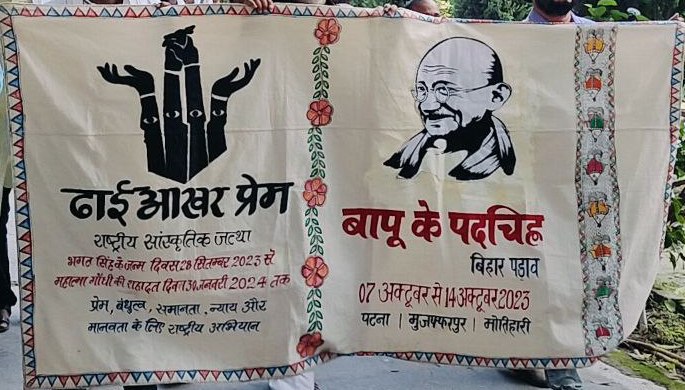 ढाई आखर प्रेम
राष्ट्रीय सांस्कृतिक जत्था
भगत सिंह के जन्म दिवस 28 सितम्बर 2023 से
महात्मा गाँधी की शहादत दिवस 30 जनवरी 2024 तक
प्रेम, बंधुत्व, समानता, न्याय और
मानवता के लिए राष्ट्रीय अभियान
बापू के पदचिह्न
बिहार पड़ाव
07 अक्टूबर से 14 अक्टूबर 2023
पटना | मुजफ्फरपुर | मोतिहारी